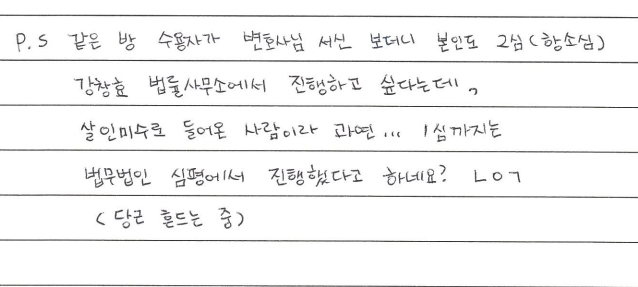 P.S 같은 방 수용자가 변호사님 서신 보더니 본인도 2심(항소심)
강창효 법률사무소에서 진행하고 싶다는데,
살인미수로 들어온 사람이라 과연... 1심까지는
법무법인 심평에서 진행했다고 하네요? ㄴㅇㄱ
(당근 흔드는 중)